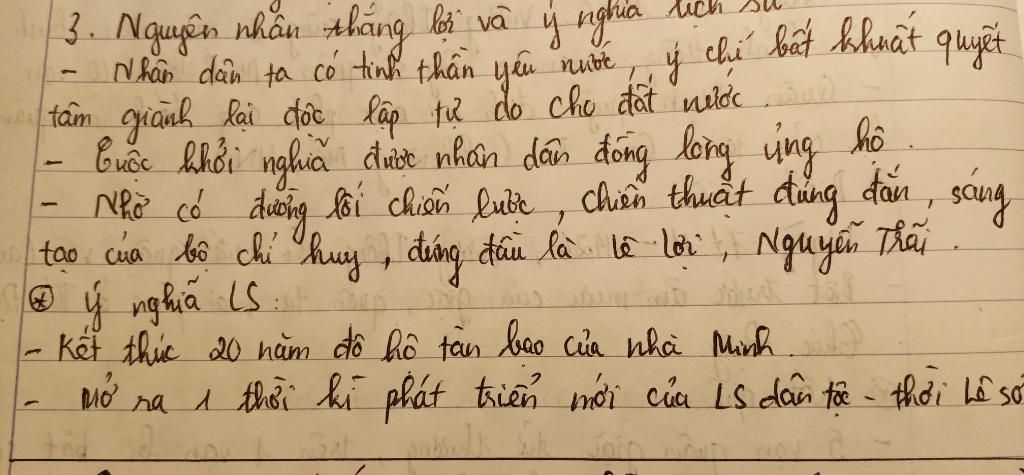 3. Nguyên nhân thắng lợi và ý nghĩa lịch sử
- Nhân dân ta có tinh thần yêu nước, ý chí bất khuất quyết
tâm giành lại độc lập tự do cho đất nước.
- Cuộc khởi nghĩa được nhân dân đồng lòng ủng hộ.
- Nhờ có đường lối chiến lược, chiến thuật đúng đắn, sáng
tạo của bộ chỉ huy, đứng đầu là Lê Lợi, Nguyễn Trãi.
⊛ Ý nghĩa LS:
- Kết thúc 20 năm đô hộ tàn bạo của nhà Minh.
- Mở ra 1 thời kì phát triển mới của LS dân tộc - thời Lê sơ